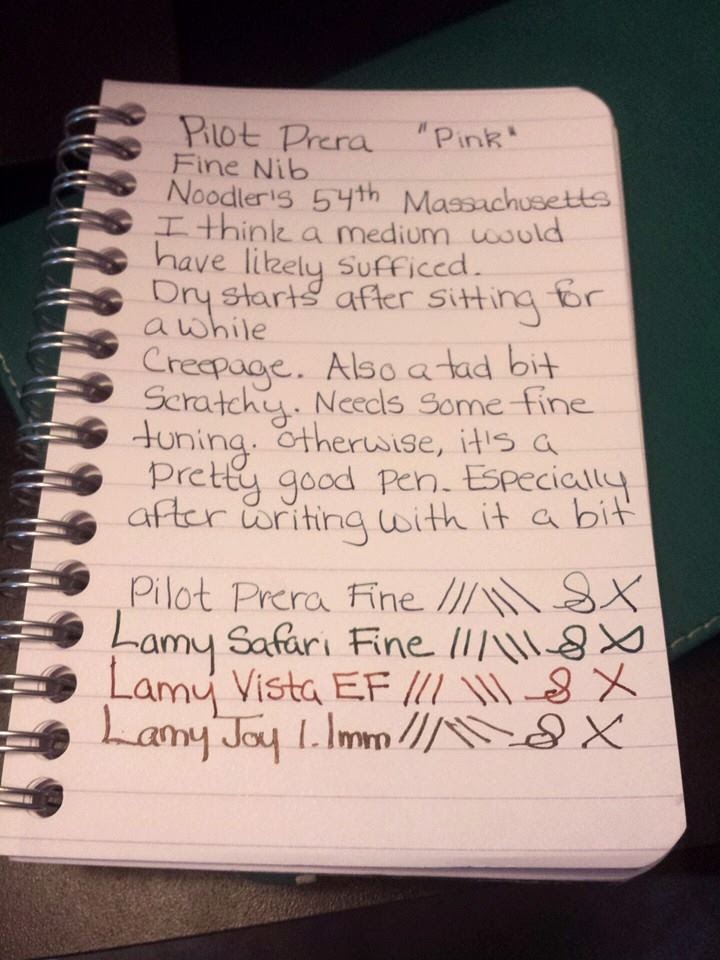 Pilot Prera "Pink"
Fine Nib
Noodler's 54th Massachusetts
I think a medium would
have likely sufficed.
Dry starts after sitting for
a while
Creepage. Also a tad bit
Scratchy. Needs some fine
tuning. Otherwise, it's a
Pretty good pen. Especially
after writing with it a bit
Pilot Prera Fine ///\\\ 8 X
Lamy Safari Fine ///\\\ 8 X
Lamy Vista EF /// \\\ 8 X
Lamy Joy 1.1mm ///\\\ 8 X